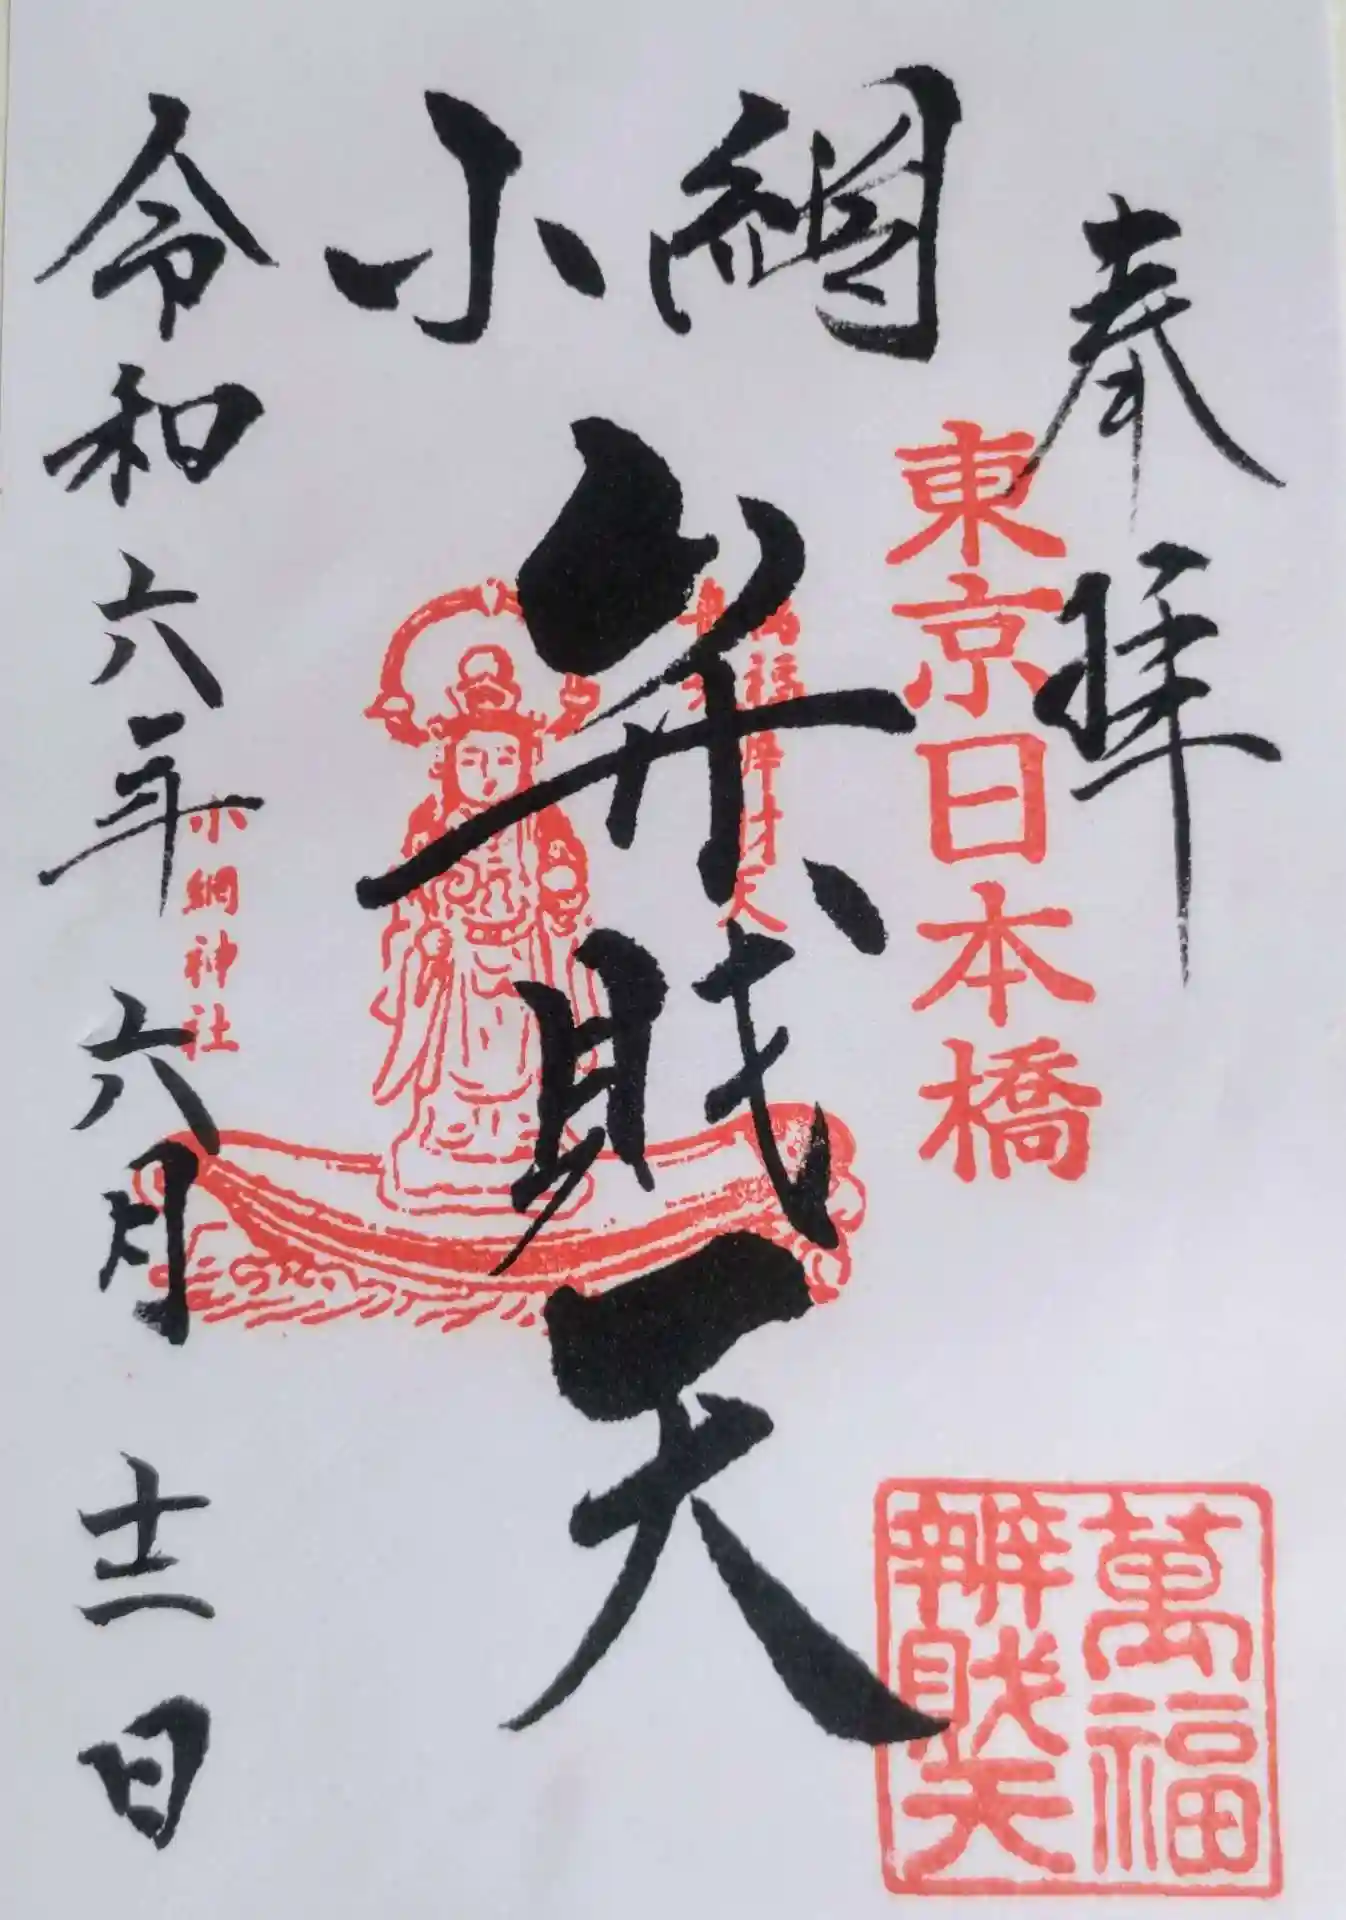 奉拝
東京日本橋
小網
弁財天
萬福
辨財天
萬福
辨財天
小網神社
令和六年六月十二日